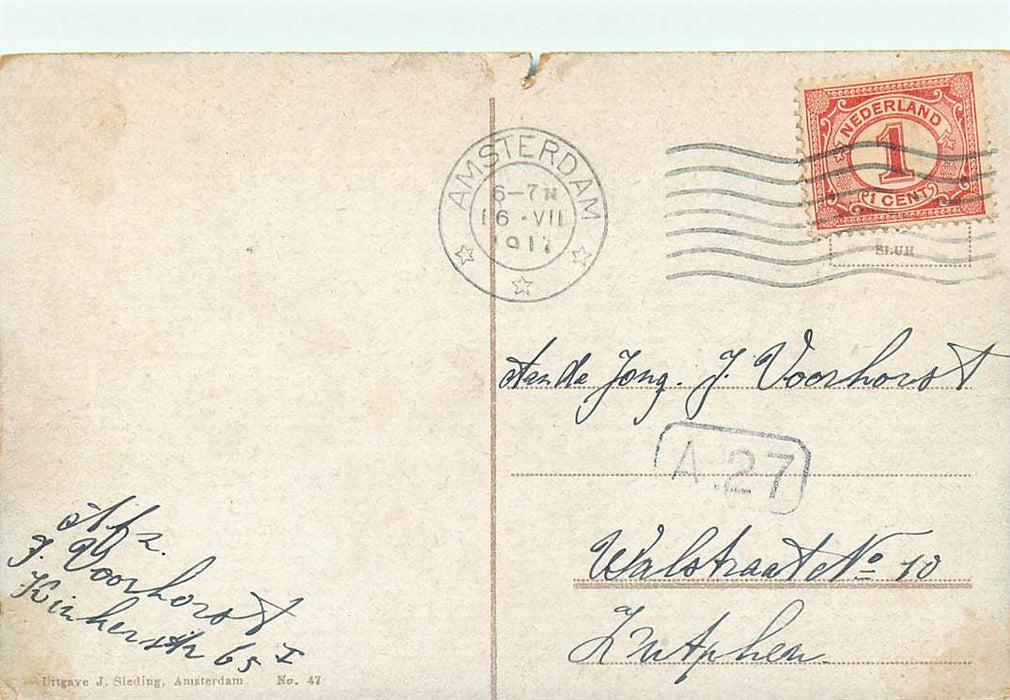 AMSTERDAM
6-7N
16·VII
1917
NEDERLAND
1
1 CENT
Aan de Jong. J. Voorhorst
A.27
Walstraat No 10
Zutphen
Afz.
J. Voorhorst
Kinkerstr 65 I
Uitgave J. Sleding, Amsterdam No. 47